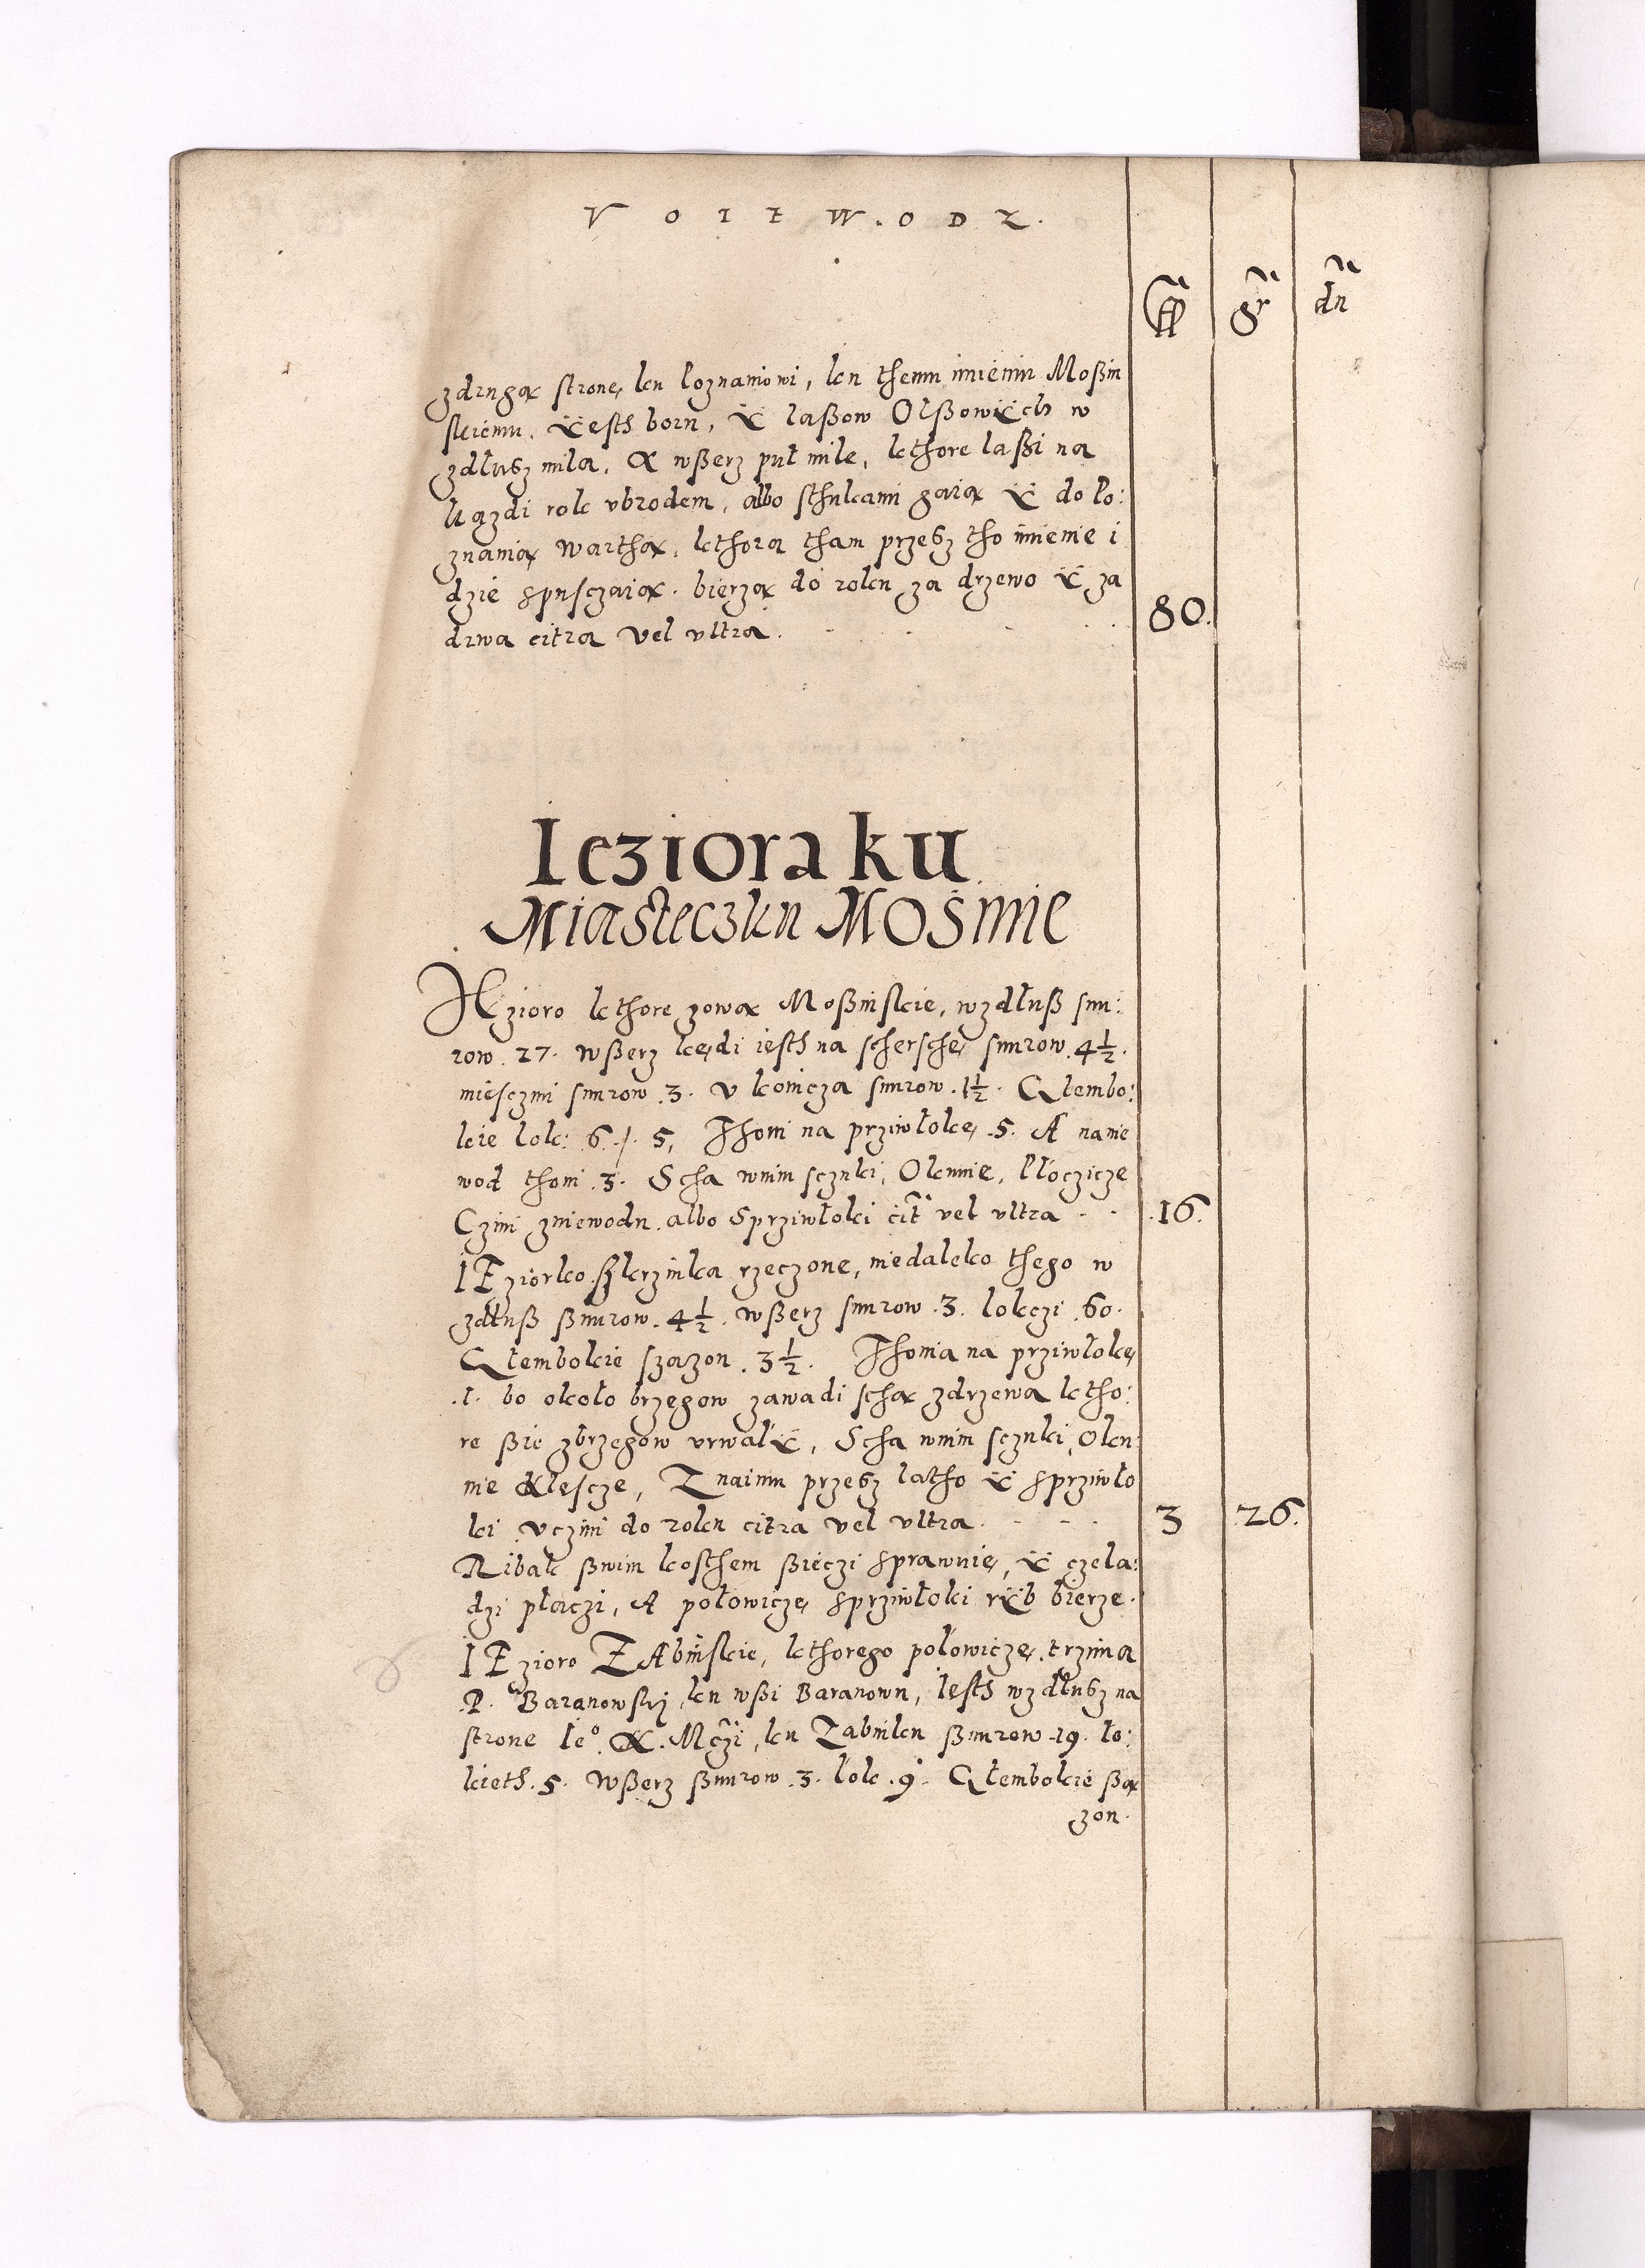 VOIEWODZ.
fl gr dn
zdrugą stronę ku Poznaniowi, ku themu imieniu Moßin
skiemu. ÿesth born, ÿ laßow Olßowÿch w
zdłusz mila, A wßerz puł mile, kthore laßi na
każdi rok vbrodem, albo sthukami gaią ÿ do Po:
znania Warthą, kthora tham przesz tho imienie i
dzie spusczaią. bierzą do roku za drzewo ÿ za
drwa citra vel vltra. 80.
Ieziora ku
Miasteczku Mosinie
IEzioro kthore zową Moßinskie, wzdłuß snu:
row. 27. wßerz kędi iesth na scherschę snurow. 4½.
mieisczmi snurow .3. v koincza snurow .1½. Głembo:
kie lok: 6. / 5, Thoni na prziwłokę .5. A na nie
wod thoni .3. Scha wnim sczuki, Okunie, Płoczicze
Czini zniewodu. albo Sprziwłoki cit vel vltra .16.
IEziorko Szkrzinka rzeczone, niedaleko thego w
zdłuß ßnurow. 4½. wßerz snurow .3. lokczi .60.
Głembokie szazon .3½. Thonia na prziwłokę
.1. bo około brzegow zawadi schą zdrzewa ktho:
re ßie zbrzegow vrwalÿ, Scha wnim sczuki, Oku
nie Klescze, Z naimu przesz latho ÿ sprziwło
ki vczini do roku citra vel vltra. 3 26.
Ribak ßwim kosthem ßieczi sprawuie, ÿ czela:
dzi płaczi, A połowiczę sprziwłoki rÿb bierze.
IEzioro ZAbinskie, kthorego połowiczę trzima
P. Baranowski, ku wßi Baranowu, iesth wzdłusz na
strone Ieº. K. Mczi, ku Zabniku ßnurow .19. ło:
kieth .5. Wßerz ßnurow .3. lok .9. Głembokie ßą
zon.